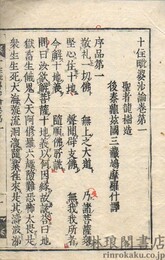 十住毗婆沙論卷第一
聖者龍樹造
後秦龜茲國三藏鳩摩羅什譯
序品第一
敬禮一切佛 無上之大道 及諸菩薩衆
堅心住十地 聲聞辟支佛 無我我所者
今解十地義 隨順佛所說
問曰汝欲解菩薩十地義以何因緣故說答曰地
獄畜生餓鬼人天阿修羅六趣險難恐怖大畏是
衆生生死大海旋流洄澓隨業往來是其濤
琳琅閣書店
rinrokaku.co.jp